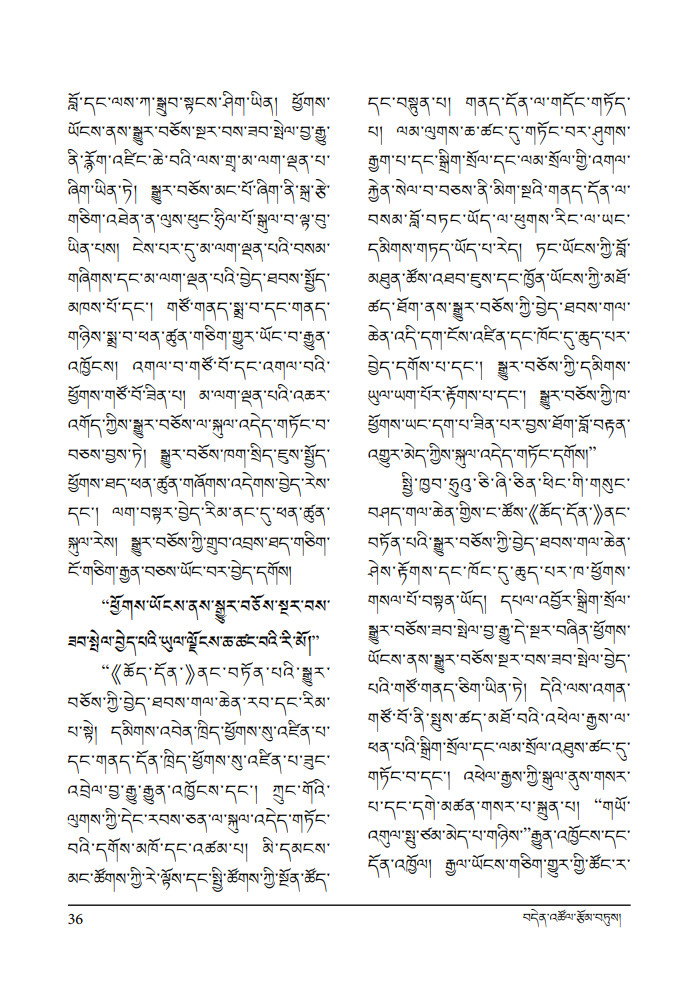 བློ་དང་ལས་ཀ་སྒྲུབ་སྟངས་ཤིག་ཡིན། ཕྱོགས་
ཡོངས་ནས་སྒྱུར་བཅོས་སྔར་བས་ཟབ་སྤེལ་བྱ་རྒྱུ་
ནི་རྙོག་འཛིང་ཆེ་བའི་ལས་གྲྭ་མ་ལག་ལྡན་པ་
ཞིག་ཡིན་ཏེ། སྒྱུར་བཅོས་མང་པོ་ཞིག་ནི་སྐྲ་རྩེ་
གཅིག་འཐེན་ན་ལུས་ཕུང་ཧྲིལ་པོ་སྒུལ་བ་ལྟ་བུ་
ཡིན་པས། ངེས་པར་དུ་མ་ལག་ལྡན་པའི་བསམ་
གཞིགས་དང་མ་ལག་ལྡན་པའི་བྱེད་ཐབས་སྤྱོད་
མཁས་པོ་དང་། གཙོ་གནད་སྨྲ་བ་དང་གནད་
གཉིས་སྨྲ་བ་ཕན་ཚུན་གཅིག་གྱུར་ཡོང་བ་རྒྱུན་
འཁྱོངས། འགལ་བ་གཙོ་བོ་དང་འགལ་བའི་
ཕྱོགས་གཙོ་བོ་ཟིན་པ། མ་ལག་ལྡན་པའི་འཆར་
འགོད་ཀྱིས་སྒྱུར་བཅོས་ལ་སྐུལ་འདེད་གཏོང་བ་
བཅས་བྱས་ཏེ། སྒྱུར་བཅོས་ཁག་སྲིད་ཇུས་སྤྱོད་
ཕྱོགས་ཐད་ཕན་ཚུན་གཞོགས་འདེགས་བྱེད་རེས་
དང་། ལག་བསྟར་བྱེད་རིམ་ནང་དུ་ཕན་ཚུན་
སྐུལ་རེས། སྒྱུར་བཅོས་ཀྱི་གྲུབ་འབྲས་ཐད་གཅིག་
ངོ་གཅིག་རྒྱན་བཅས་ཡོང་བར་བྱེད་དགོས།
“ཕྱོགས་ཡོངས་ནས་སྒྱུར་བཅོས་སྔར་བས་
ཟབ་སྤེལ་བྱེད་པའི་ཡུལ་ལྗོངས་ཆ་ཚང་བའི་རི་མོ།”
“《ཆོད་དོན་》ནང་བཏོན་པའི་སྒྱུར་
བཅོས་ཀྱི་བྱེད་ཐབས་གལ་ཆེན་རབ་དང་རིམ་
པ་སྟེ། དམིགས་འབེན་ཁྲིད་ཕྱོགས་སུ་འཛིན་པ་
དང་གནད་དོན་ཁྲིད་ཕྱོགས་སུ་འཛིན་པ་ཟུང་
འབྲེལ་བྱ་རྒྱུ་རྒྱུན་འཁྱོངས་དང་། ཀྲུང་གོའི་
ལུགས་ཀྱི་དེང་རབས་ཅན་ལ་སྐུལ་འདེད་གཏོང་
བའི་དགོས་མཁོ་དང་འཚམ་པ། མི་དམངས་
མང་ཚོགས་ཀྱི་རེ་ལྟོས་དང་སྤྱི་ཚོགས་ཀྱི་སྔོན་ཚོད་
དང་བསྟུན་པ། གནད་དོན་ལ་གདོང་གཏོད་
པ། ལམ་ལུགས་ཆ་ཚང་དུ་གཏོང་བར་ཤུགས་
རྒྱག་པ་དང་སྒྲིག་སྲོལ་དང་ལམ་སྲོལ་གྱི་འགལ་
རྐྱེན་སེལ་བ་བཅས་ནི་མིག་སྔའི་གནད་དོན་ལ་
བསམ་བློ་བཏང་ཡོད་ལ་ཕུགས་རིང་ལ་ཡང་
དམིགས་གཏད་ཡོད་པ་རེད། ཏང་ཡོངས་ཀྱི་བློ་
མཐུན་ཚོས་འཐབ་ཇུས་དང་ཁྱོན་ཡོངས་ཀྱི་མཐོ་
ཚད་ཐོག་ནས་སྒྱུར་བཅོས་ཀྱི་བྱེད་ཐབས་གལ་
ཆེན་འདི་དག་ངོས་འཛིན་དང་ཁོང་དུ་ཆུད་པར་
བྱེད་དགོས་པ་དང་། སྒྱུར་བཅོས་ཀྱི་དམིགས་
ཡུལ་ཡག་པོར་རྟོགས་པ་དང་། སྒྱུར་བཅོས་ཀྱི་ཁ་
ཕྱོགས་ཡང་དག་པ་ཟིན་པར་བྱས་ཐོག་བློ་བརྟན་
འགྱུར་མེད་ཀྱིས་སྐུལ་འདེད་གཏོང་དགོས།”
སྤྱི་ཁྱབ་ཧྲུའུ་ཅི་ཞི་ཅིན་ཕིང་གི་གསུང་
བཤད་གལ་ཆེན་གྱིས་ང་ཚོས་《ཆོད་དོན་》ནང་
བཏོན་པའི་སྒྱུར་བཅོས་ཀྱི་བྱེད་ཐབས་གལ་ཆེན་
ཤེས་རྟོགས་དང་ཁོང་དུ་ཆུད་པར་ཁ་ཕྱོགས་
གསལ་པོ་བསྟན་ཡོད། དཔལ་འབྱོར་སྒྲིག་སྲོལ་
སྒྱུར་བཅོས་ཟབ་སྤེལ་བྱ་རྒྱུ་དེ་སྔར་བཞིན་ཕྱོགས་
ཡོངས་ནས་སྒྱུར་བཅོས་སྔར་བས་ཟབ་སྤེལ་བྱེད་
པའི་གཙོ་གནད་ཅིག་ཡིན་ཏེ། དེའི་ལས་འགན་
གཙོ་བོ་ནི་སྤུས་ཚད་མཐོ་བའི་འཕེལ་རྒྱས་ལ་
ཕན་པའི་སྒྲིག་སྲོལ་དང་ལམ་སྲོལ་འཐུས་ཚང་དུ་
གཏོང་བ་དང་། འཕེལ་རྒྱས་ཀྱི་སྐུལ་ནུས་གསར་
པ་དང་དགེ་མཚན་གསར་པ་སྐྲུན་པ། “གཡོ་
འགུལ་སྤུ་ཙམ་མེད་པ་གཉིས་”རྒྱུན་འཁྱོངས་དང་
དོན་འཁྱོལ། རྒྱལ་ཡོངས་གཅིག་གྱུར་གྱི་ཚོང་ར་
36
བདེན་འཚོལ་རྩོམ་བཏུས།